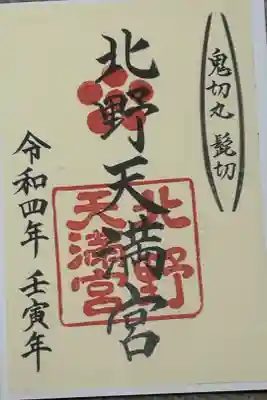 鬼切丸 髭切
北野天満宮
北野
天満宮
令和四年 壬寅年